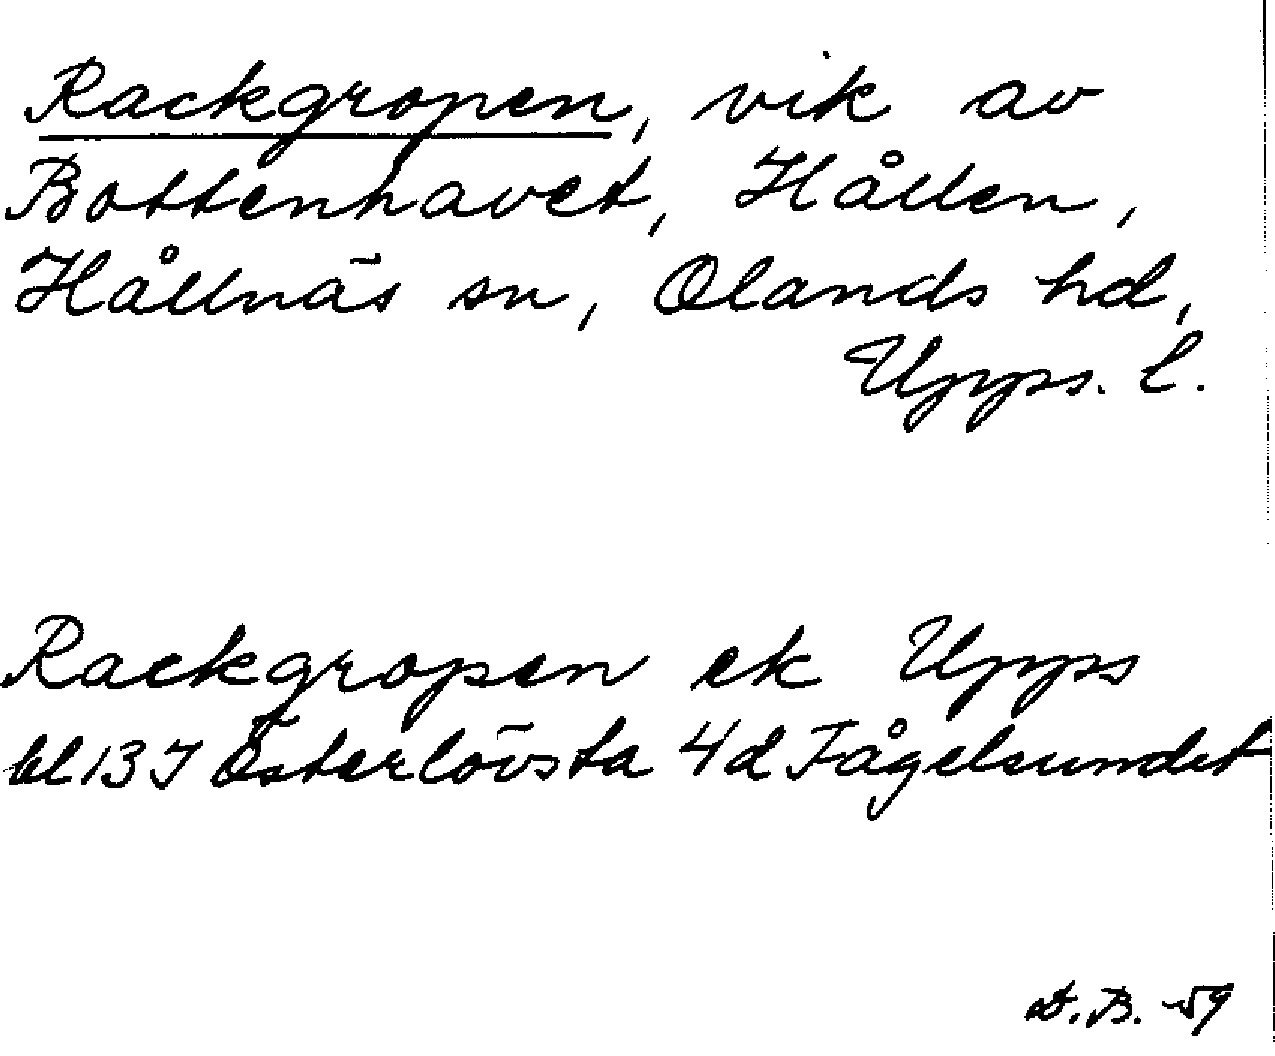 Rackgropen, vik av
Bottenhavet, Hållen,
Hållnäs sn, Olands hd,
Upps. l.
Rackgropen ek Upps
bl 13 I Österlövsta 4d Fågelsundet
D.B. -59